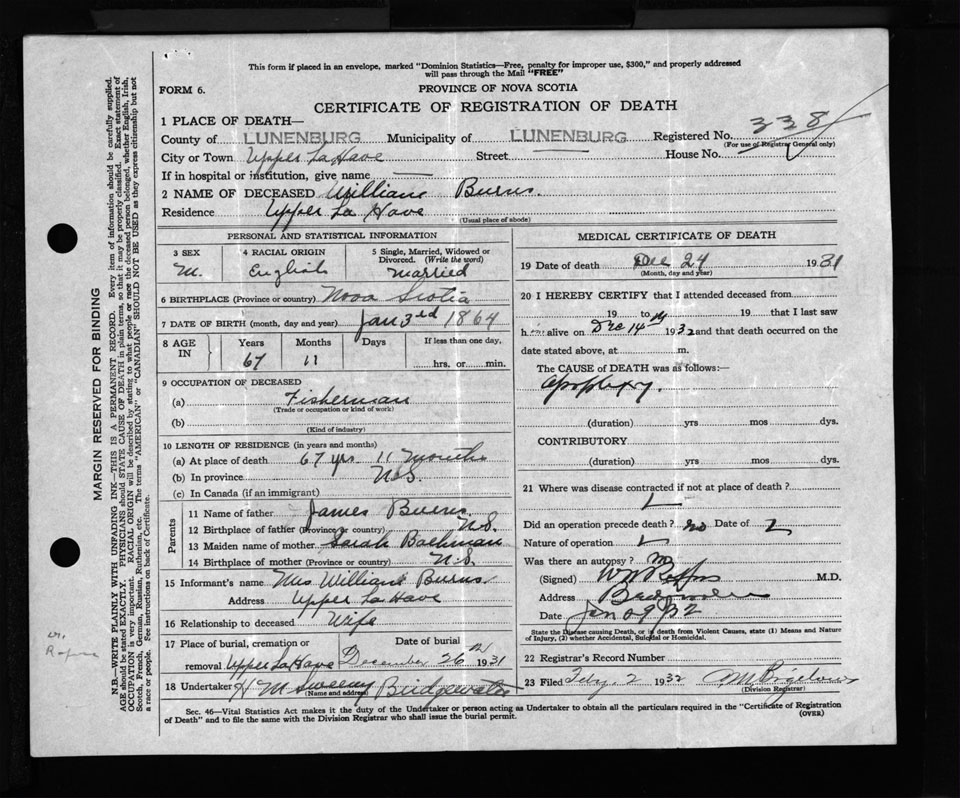 This form if placed in an envelope, marked "Dominion Statistics—Free, penalty for improper use, $300," and properly addressed
will pass through the Mail "FREE"
FORM 6.
PROVINCE OF NOVA SCOTIA
CERTIFICATE OF REGISTRATION OF DEATH
1 PLACE OF DEATH—
County of LUNENBURG Municipality of LUNENBURG Registered No. 338
(For use of Registrar General only)
City or Town Upper La Have Street — House No.
If in hospital or institution, give name —
2 NAME OF DECEASED William Burns.
Residence Upper La Have
(Usual place of abode)
PERSONAL AND STATISTICAL INFORMATION
3 SEX 4 RACIAL ORIGIN 5 Single, Married, Widowed or
Divorced. (Write the word)
M. English married
6 BIRTHPLACE (Province or country) Nova Scotia
7 DATE OF BIRTH (month, day and year) Jan 3rd 1864
8 AGE IN Years Months Days If less than one day,
67 11 hrs. or min.
9 OCCUPATION OF DECEASED
(a) Fisherman
(Trade or occupation or kind of work)
(b)
(Kind of industry)
10 LENGTH OF RESIDENCE (in years and months)
(a) At place of death 67 yrs. 11 Months
(b) In province N.S.
(c) In Canada (if an immigrant)
Parents
11 Name of father James Burns
12 Birthplace of father (Province or country) N.S.
13 Maiden name of mother Sarah Bachman
14 Birthplace of mother (Province or country) N.S.
15 Informant's name Mrs William Burns
Address Upper La Have
16 Relationship to deceased Wife
17 Place of burial, cremation or Date of burial
removal Upper La Have December 26th 1931
18 Undertaker H M Sweeny Bridgewater
(Name and address)
MEDICAL CERTIFICATE OF DEATH
19 Date of death Dec 24 1931
(Month, day and year)
20 I HEREBY CERTIFY that I attended deceased from
19 to 19 that I last saw
h alive on Dec 14th 1932 and that death occurred on the
date stated above, at m.
The CAUSE of DEATH was as follows:
Apoplexy.
(duration) yrs mos dys.
CONTRIBUTORY
(duration) yrs mos dys.
21 Where was disease contracted if not at place of death?
Did an operation precede death? no Date of
Nature of operation
Was there an autopsy?
(Signed) M.D.
Address
Date Jan 09/32
State the Disease causing Death, or in death from Violent Causes, state (1) Means and Nature
of Injury, (2) whether Accidental, Suicidal or Homicidal.
22 Registrar's Record Number
23 Filed Feby. 2 1932
(Division Registrar)
Sec. 46—Vital Statistics Act makes it the duty of the Undertaker or person acting as Undertaker to obtain all the particulars required in the "Certificate of Registration
of Death" and to file the same with the Division Registrar who shall issue the burial permit. (OVER)
MARGIN RESERVED FOR BINDING
N.B.—WRITE PLAINLY WITH UNFADING INK—THIS IS A PERMANENT RECORD. Every item of information should be carefully supplied.
AGE should be stated EXACTLY. PHYSICIANS should STATE CAUSE OF DEATH in plain terms, so that it may be properly classified. Exact statement of
OCCUPATION is very important. RACIAL ORIGIN will be described by stating to what people or race the deceased person belonged, whether English, Irish,
Scotch, French, German, Russian, Ruthenian, etc. The terms "AMERICAN" or "CANADIAN" SHOULD NOT BE USED as they express citizenship but not
a race or people. See instructions on back of Certificate.